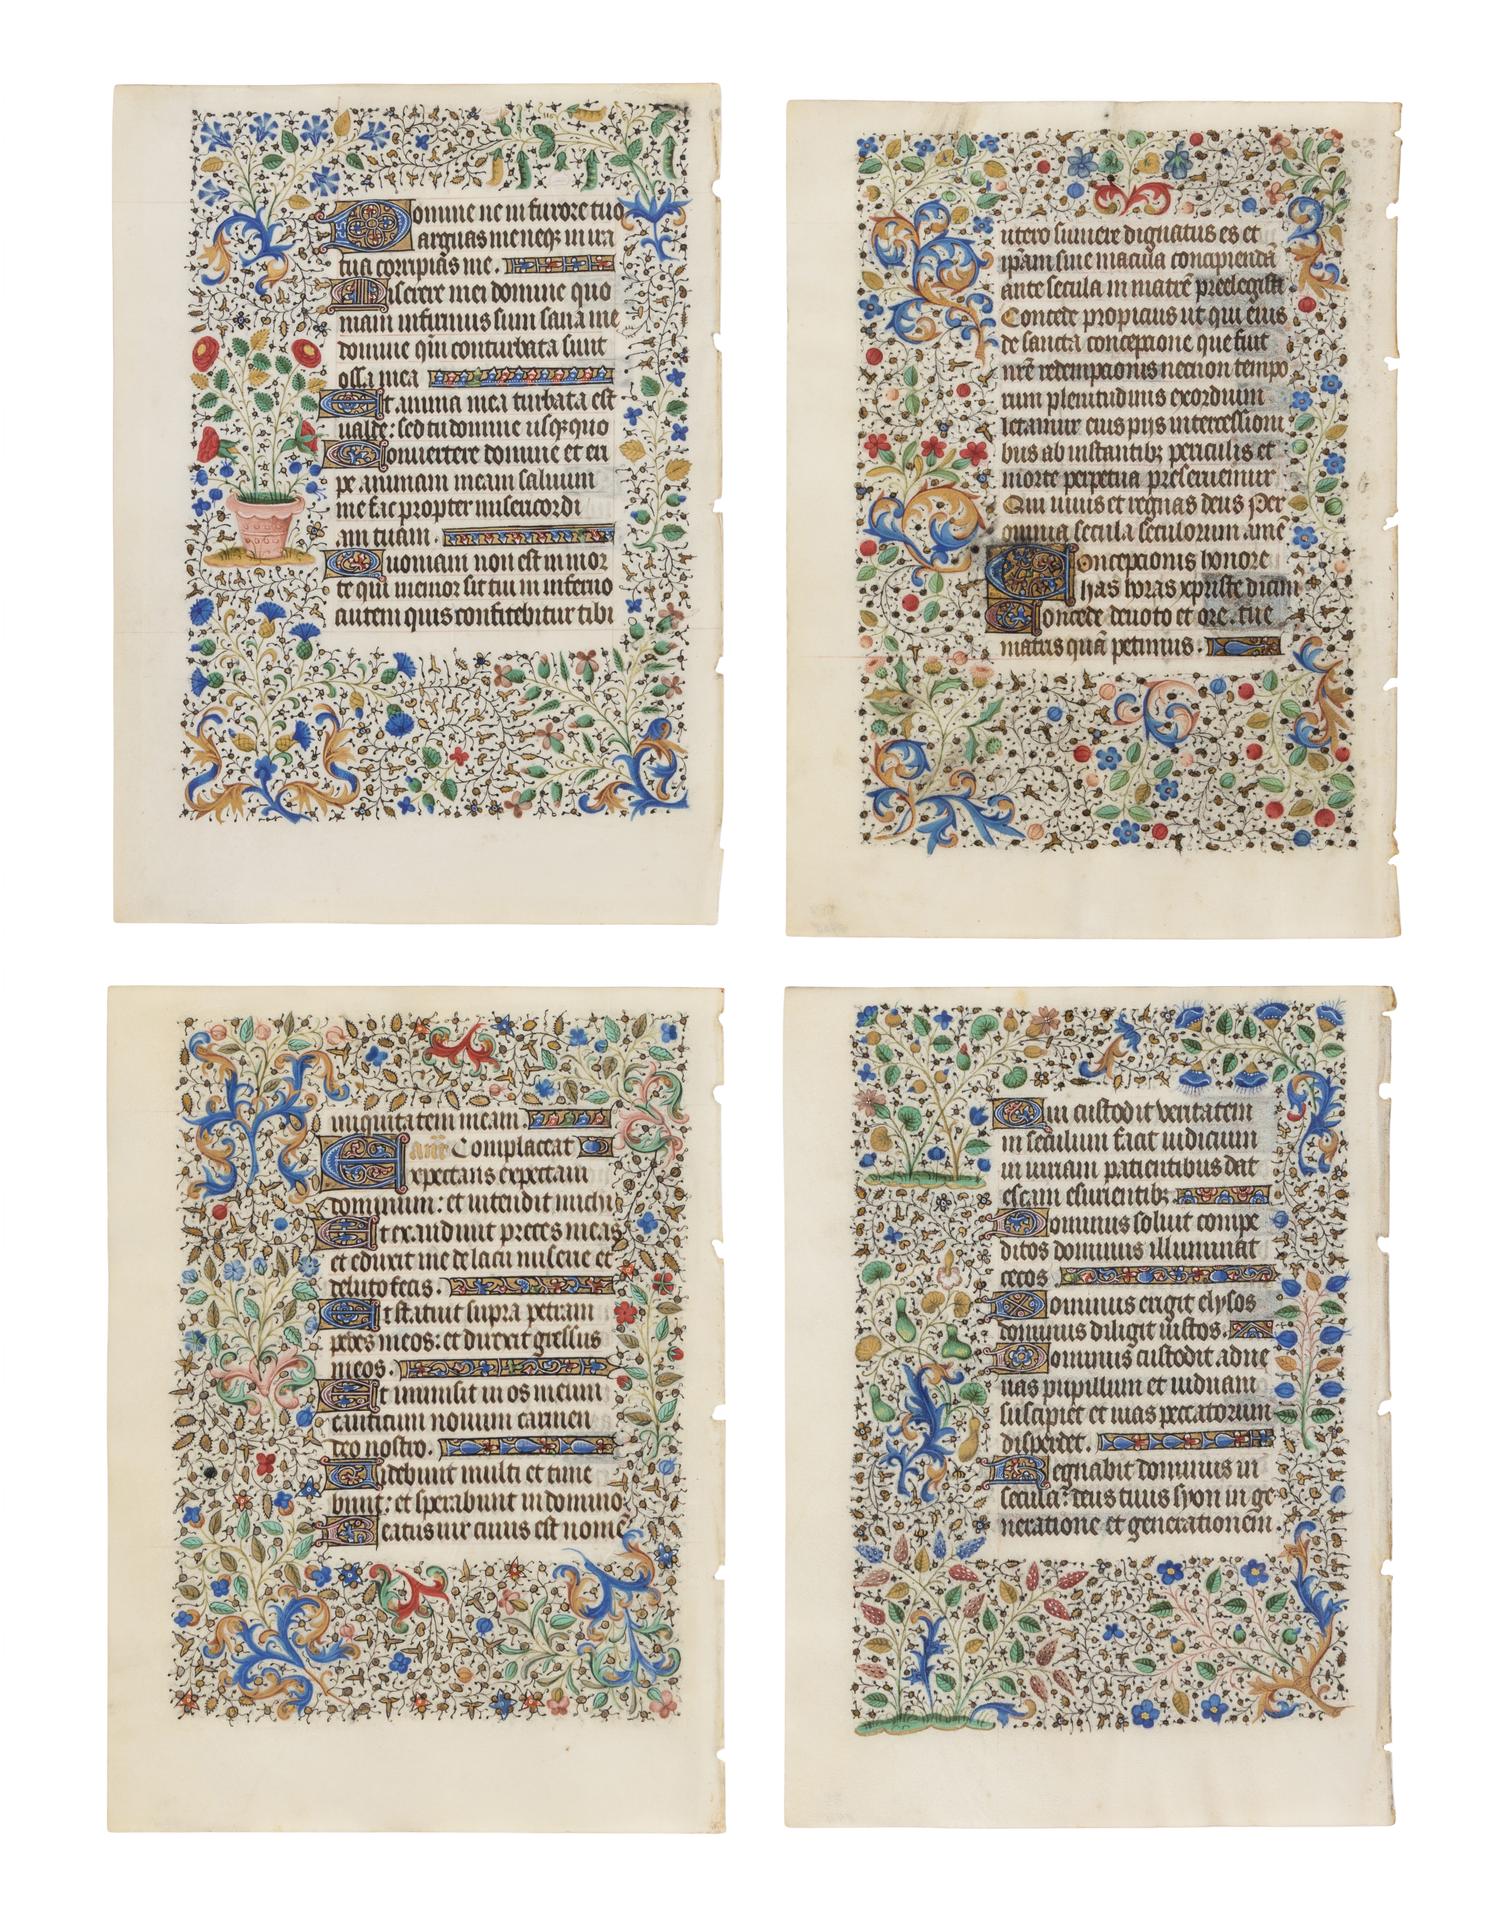 Domine ne in furore tuo
arguas me neq in ira
tua corripias me.
Miserere mei domine quo
niam infirmus sum sana me
domine qm conturbata sunt
ossa mea
Et anima mea turbata est
ualde: sed tu domine usq quo
Convertere domine et eri
pe animam meam saluum
me fac propter misericordi
am tuam.
Quoniam non est in mor
te qui memor sit tui in inferno
autem quis confitebitur tibi
utero sumere dignatus es et
ipam sine macula concipienda
ante secula in matre preelegisti
Concede propicius ut qui eius
de sancta concepcione que fuit
nre redempcionis necnon tempo
rum plenitudinis exordium
letamur eius pijs intercessioni
bus ab instantib periculis et
morte perpetua preseruemur
Qui uiuis et regnas deus Per
omnia secula seculorum ame
Concepcionis honore
has horas xpriste dicam
Concede deuoto et ore tue
matris qua petimus.
iniquitatem meam
ane Complaceat
Expectans expectaui
dominum: et intendit michi
Et exaudiuit preces meas
et eduxit me de lacu miserie et
de luto fecis.
Et statuit supra petram
pedes meos: et direxit gressus
meos.
Et immisit in os meum
canticum nouum carmen
deo nostro.
Uidebunt multi et time
bunt: et sperabunt in domino
Beatus uir cuius est nome
Qui custodit veritatem
in seculum facit iudicium
in iuriam patientibus dat
escam esurientib
Dominus soluit compe
ditos dominus illuminat
cecos
Dominus erigit elysos
dominus diligit iustos.
Dominus custodit adue
nas pupillum et uiduam
suscipiet et uias peccatorum
disperdet.
Regnabit dominus in
secula: deus tuus syon in ge
neratione et generationem.